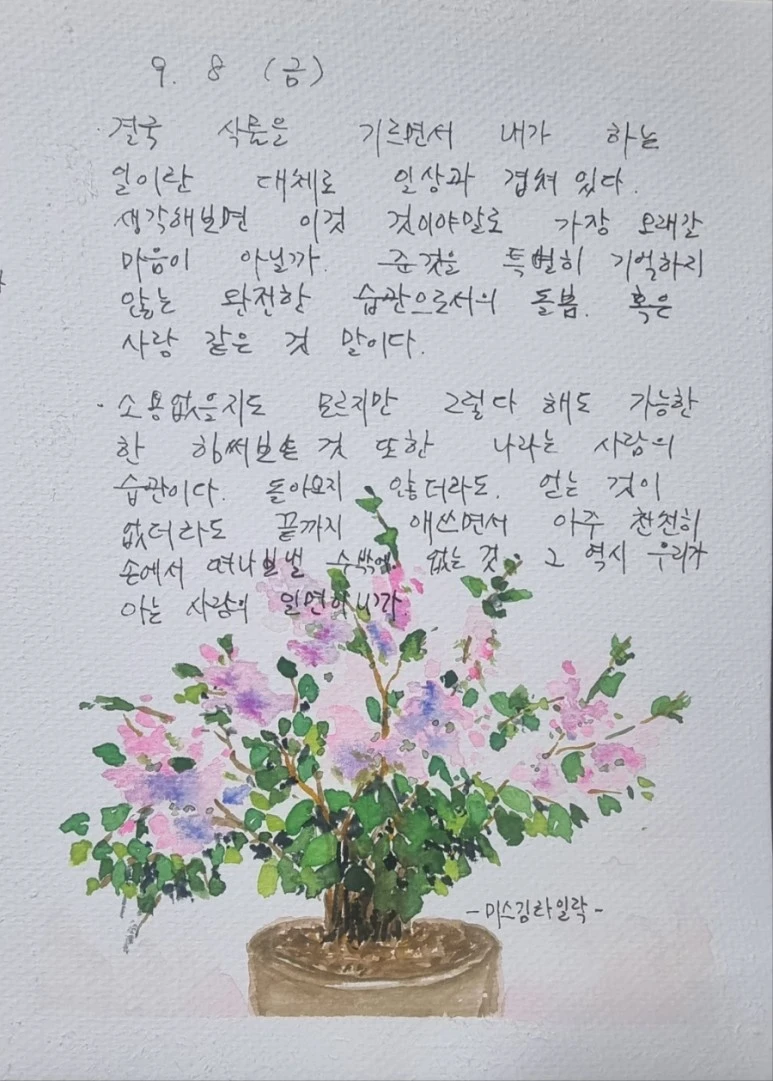 9. 8 (금)
· 결국 식물을 기르면서 내가 하는
일이란 대체로 일상과 겹쳐 있다.
생각해보면 이것 것이야말로 가장 오래갈
마음이 아닐까. 준것을 특별히 기억하지
않는 완전한 습관으로서의 돌봄. 혹은
사랑 같은 것 말이다.
· 소용없을지도 모르지만 그렇다 해도 가능한
한 힘써보는 것 또한 나라는 사람의
습관이다. 돌아오지 않더라도. 얻는 것이
없더라도 끝까지 애쓰면서 아주 찬찬히
손에서 떠나보낼 수밖에 없는 것. 그 역시 우리가
아는 사랑의 일면이니까
- 미스김라일락 -